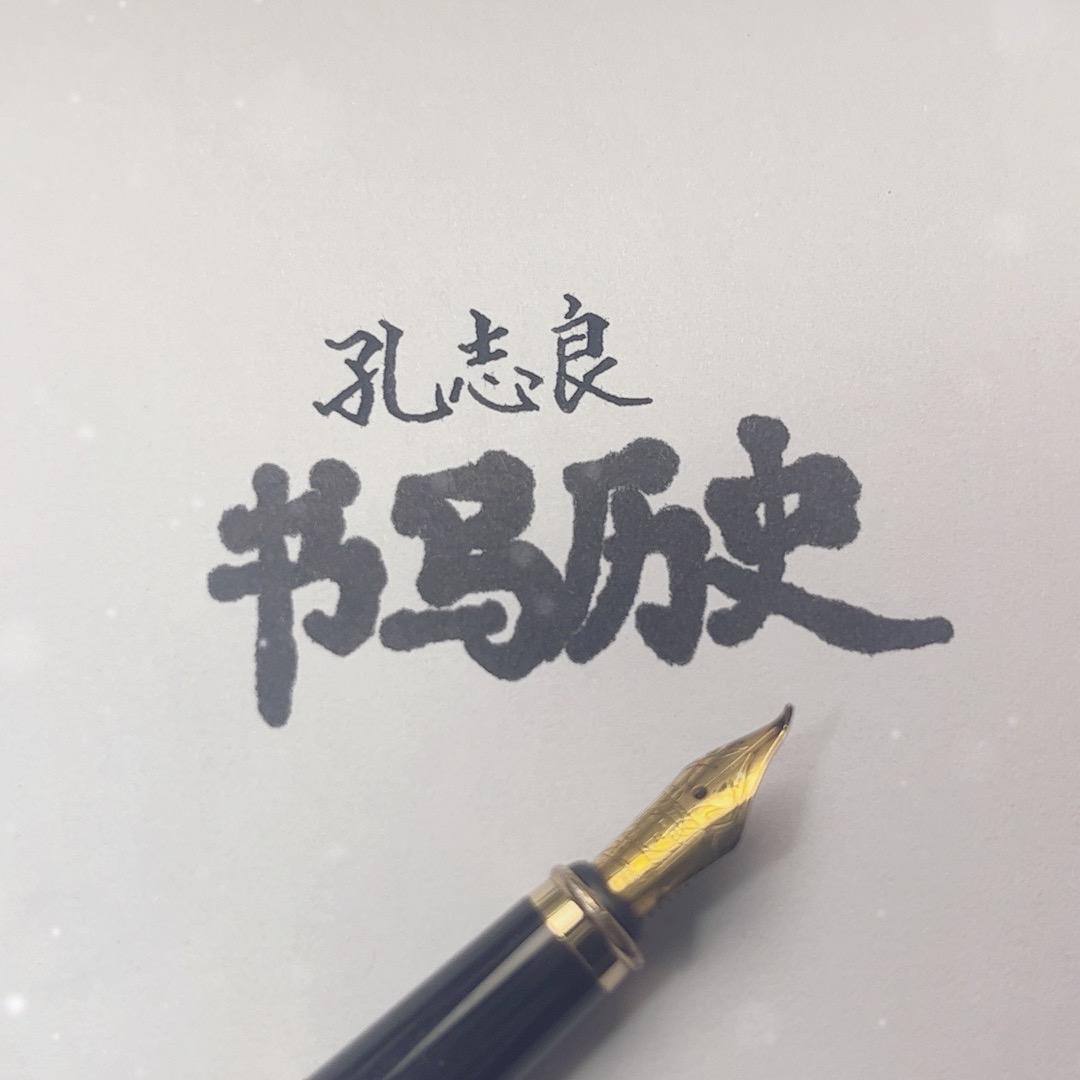 孔志良
书写历史